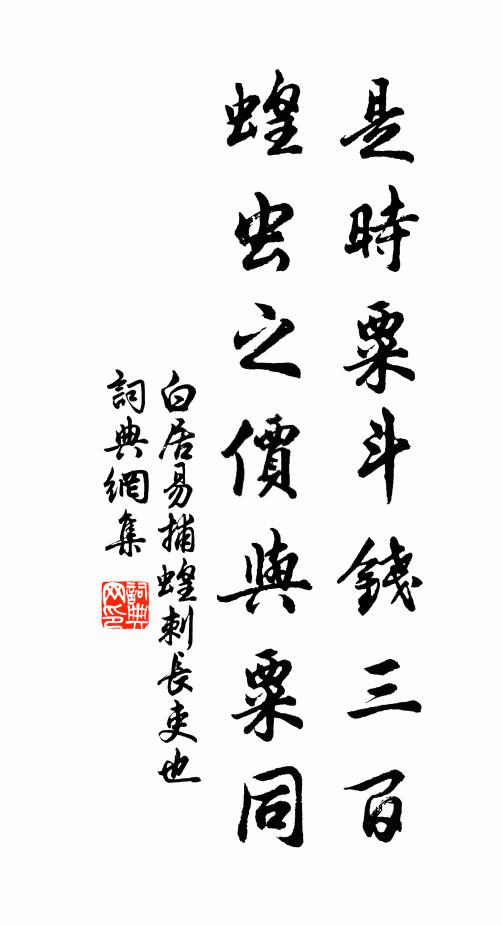 是時粟斗錢三百
蝗虫之價與粟同
白居易捕蝗刺長吏也
詞典網集
詞典网印